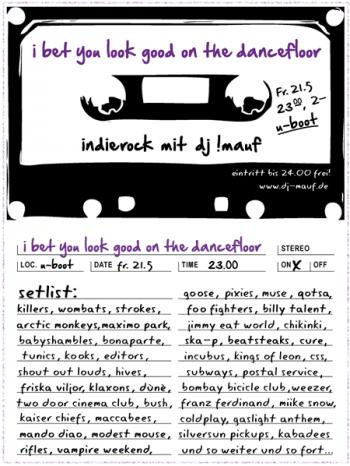 i bet you look good on the dancefloor
Fr. 21.5
23⁰⁰, 2-
u-boot
indierock mit dj !mauf
eintritt bis 24.00 frei!
www.dj-mauf.de
i bet you look good on the dancefloor
STEREO
LOC. u-boot DATE fr. 21.5 TIME 23.00 ON X OFF
setlist:
killers, wombats, strokes,
arctic monkeys,maximo park,
babyshambles, bonaparte,
tunics, kooks, editors,
shout out louds, hives,
friska viljor, klaxons, dúné,
two door cinema club, bush,
kaiser chiefs, maccabees,
mando diao, modest mouse,
rifles, vampire weekend,
goose, pixies, muse, qotsa,
foo fighters, billy talent,
jimmy eat world, chikinki,
ska-p, beatsteaks, cure,
incubus, kings of leon, css,
subways, postal service,
bombay bicicle club,weezer,
franz ferdinand, miike snow,
coldplay, gaslight anthem,
silversun pickups, kabadees
und so weiter und so fort...